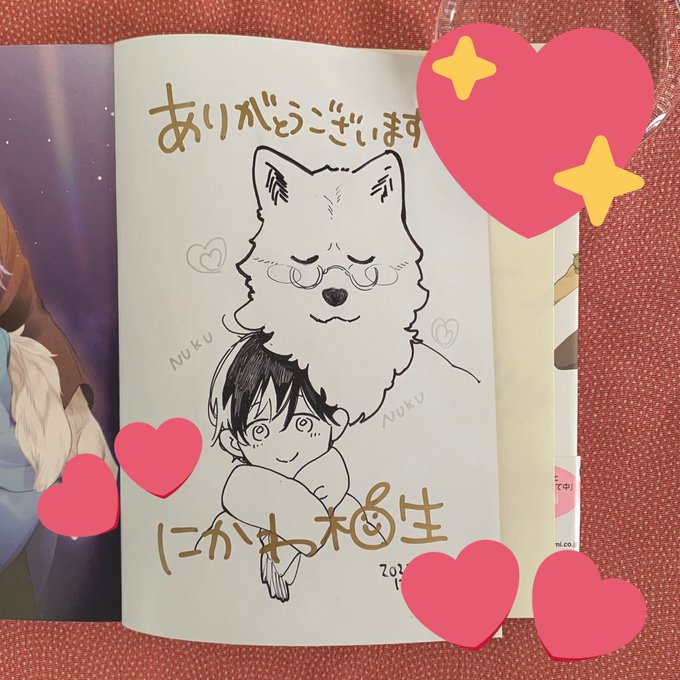 ありがとうございます
NUKU
NUKU
にかわ柚生
202
12
mi.co.jp